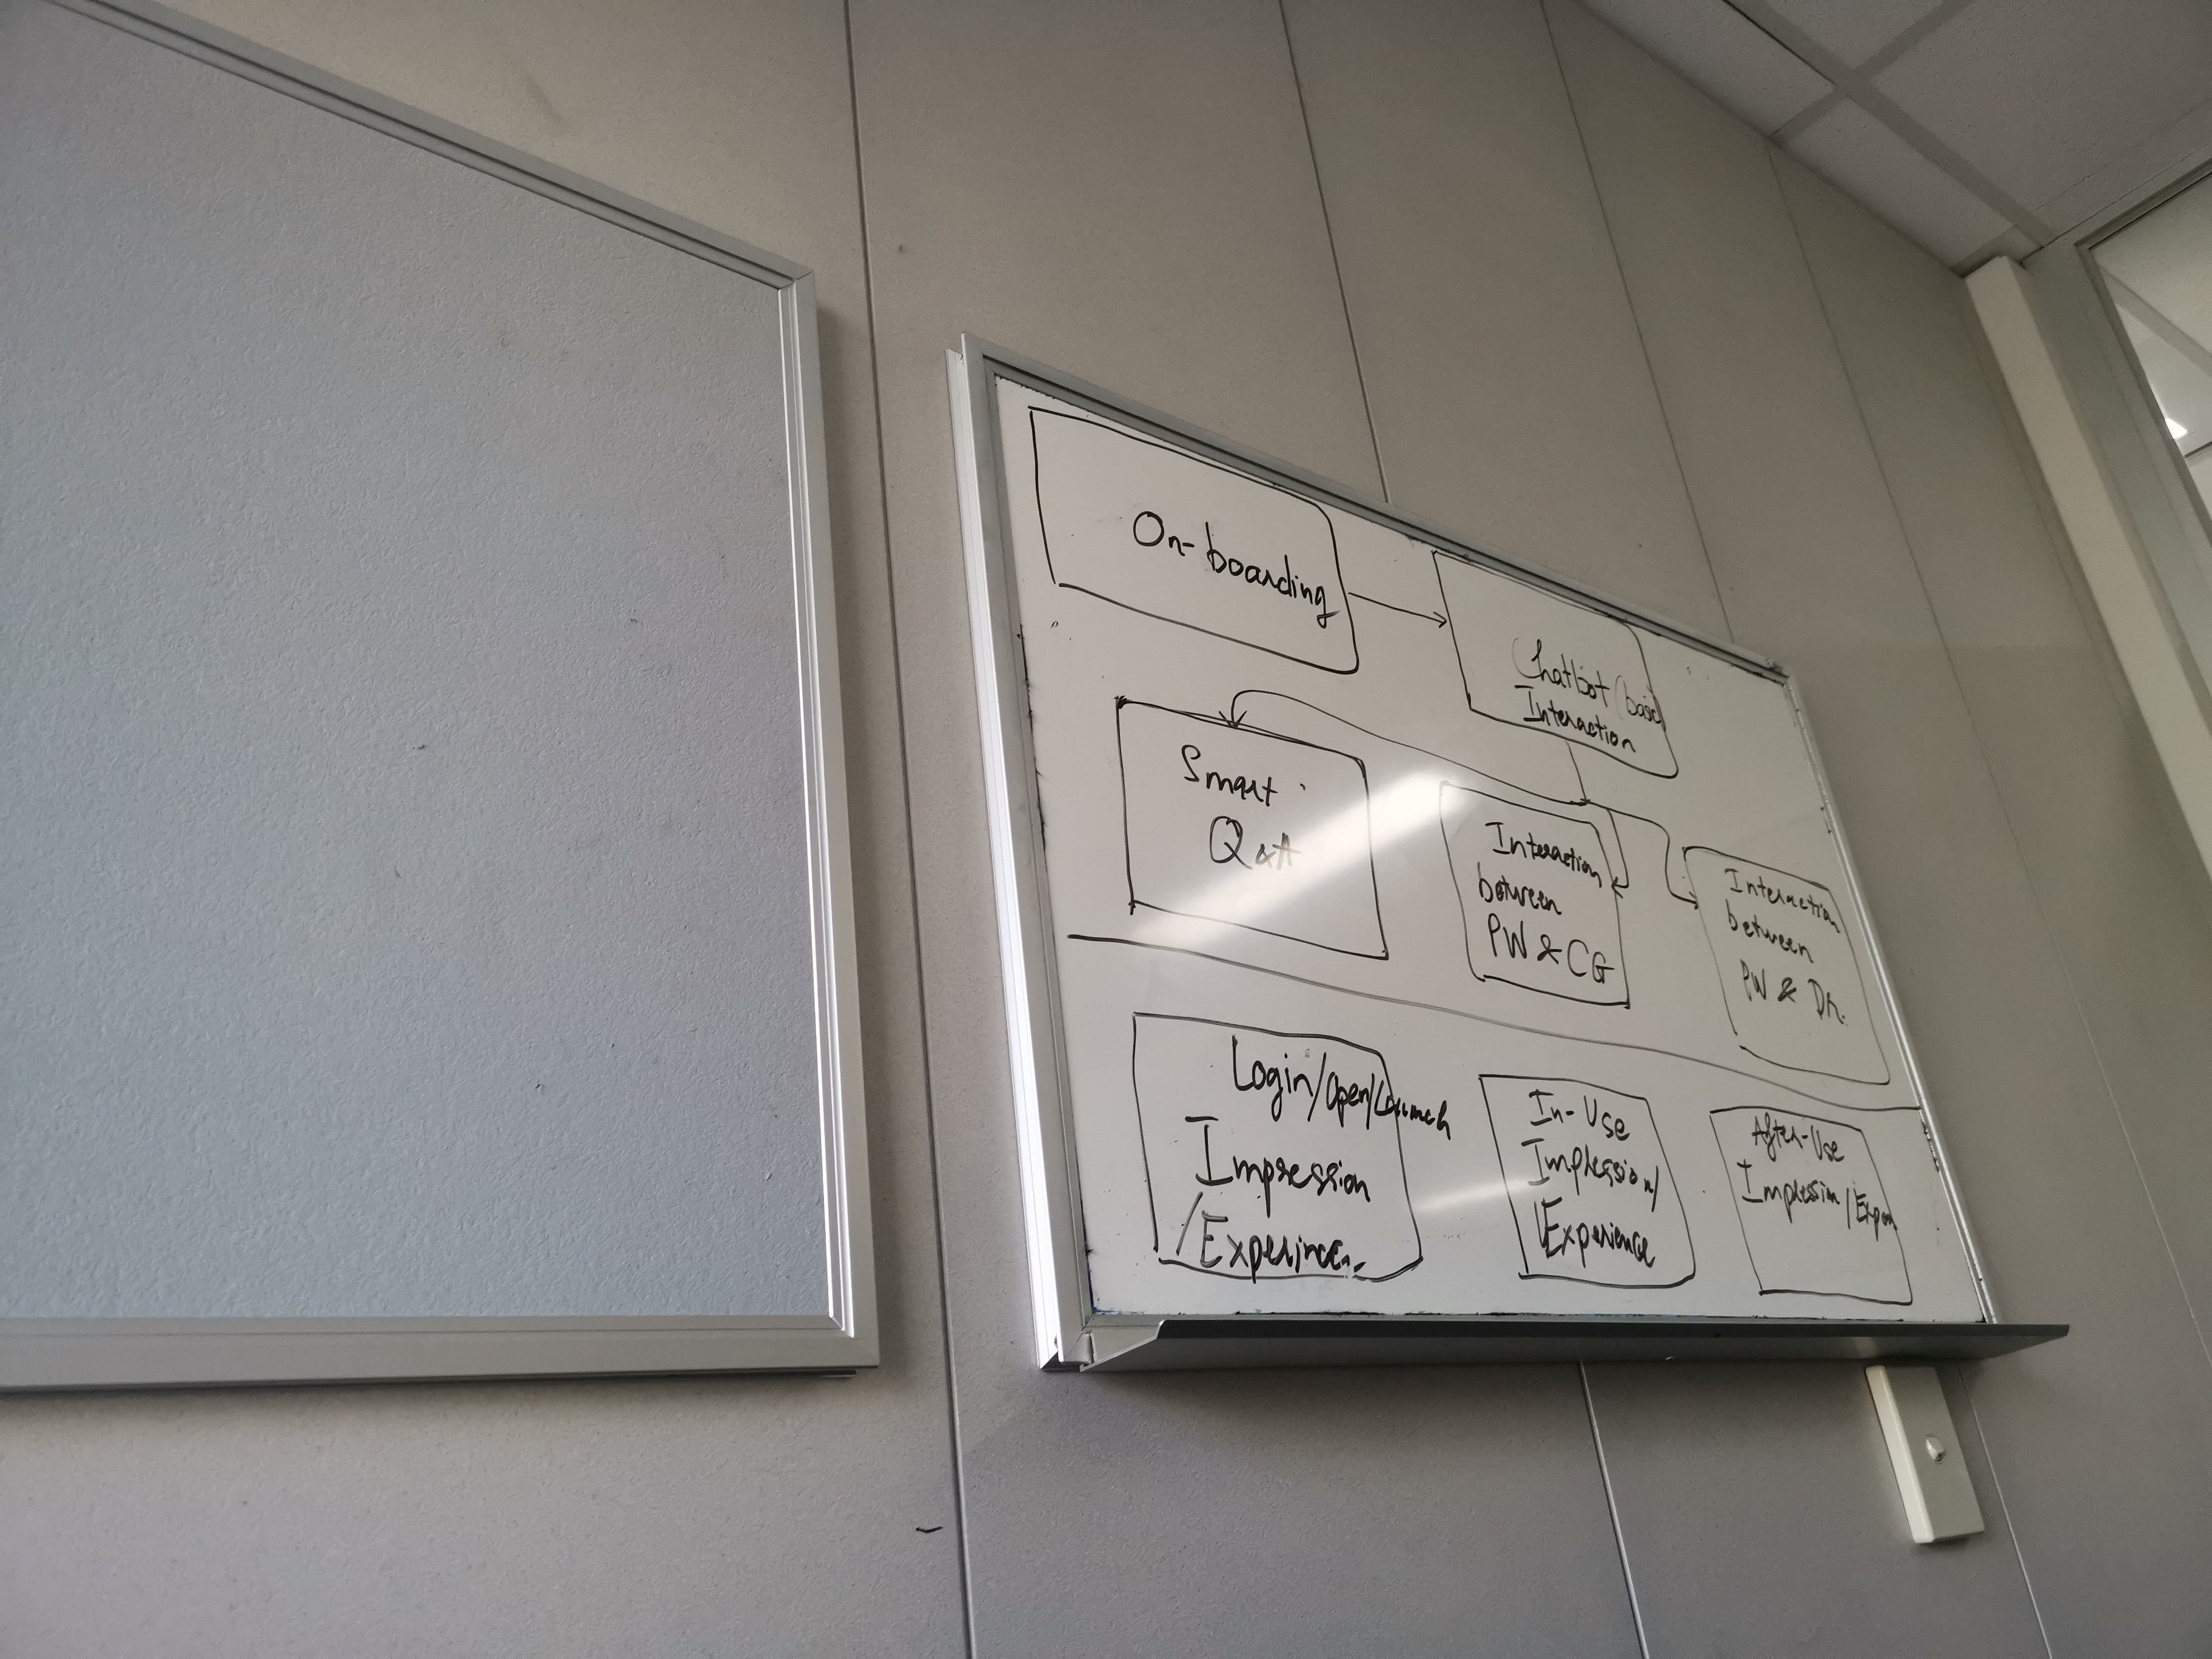 On-boarding
Chatbot (basic
Interaction
Smart
Q&A
Interaction
between
PW & CG
Interaction
between
PW & Dr.
Login/Open/Launch
Impression
/Experince..
In-Use
Impression/
Experience
After-Use
Impression/Exper